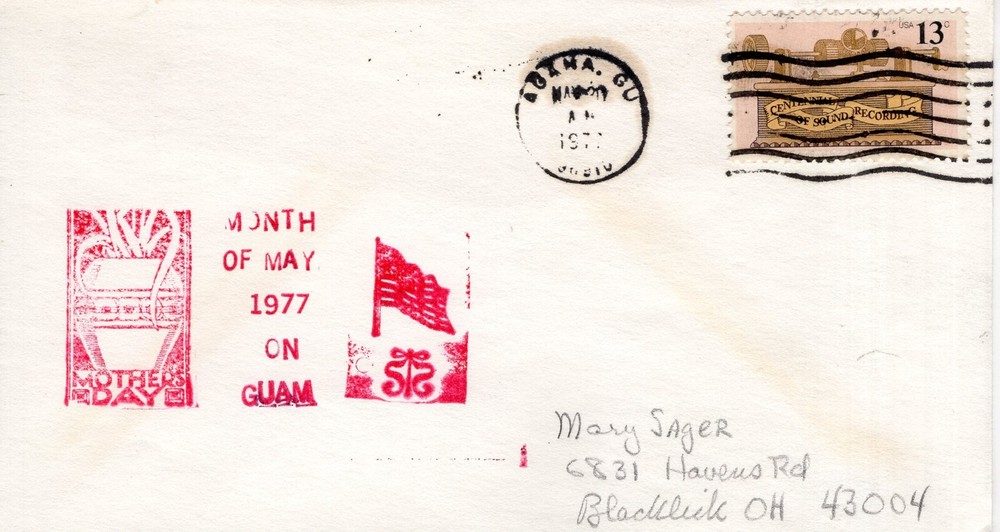 AGANA, GU
MAY
AM
1977
96910
USA 13c
CENTENNIAL
OF SOUND RECORDING
MOTHERS
DAY
MONTH
OF MAY
1977
ON
GUAM
Mary Sager
6831 Havens Rd
Blacklick OH 43004